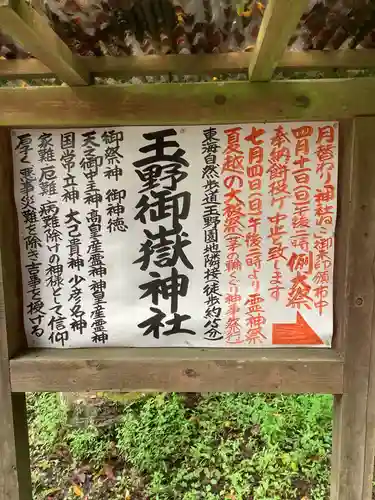 月替わり「神社のご御朱印頒布有
四月十日(日)午後一時 例大祭
奉納餅投げ中止致します。
七月四日(日)午後二時より霊神祭
夏越の大祭(茅の輪くぐり神事祭行
東海自然歩道玉野園地隣接徒歩約15分
玉野御嶽神社
御祭神 御神徳
天之御中主神 高皇産霊神 神皇産霊神
国常立神 大己貴神 少彦名神
家難、厄難、病難除けの神様として信仰
厚く悪事災難を除き吉事を授ける